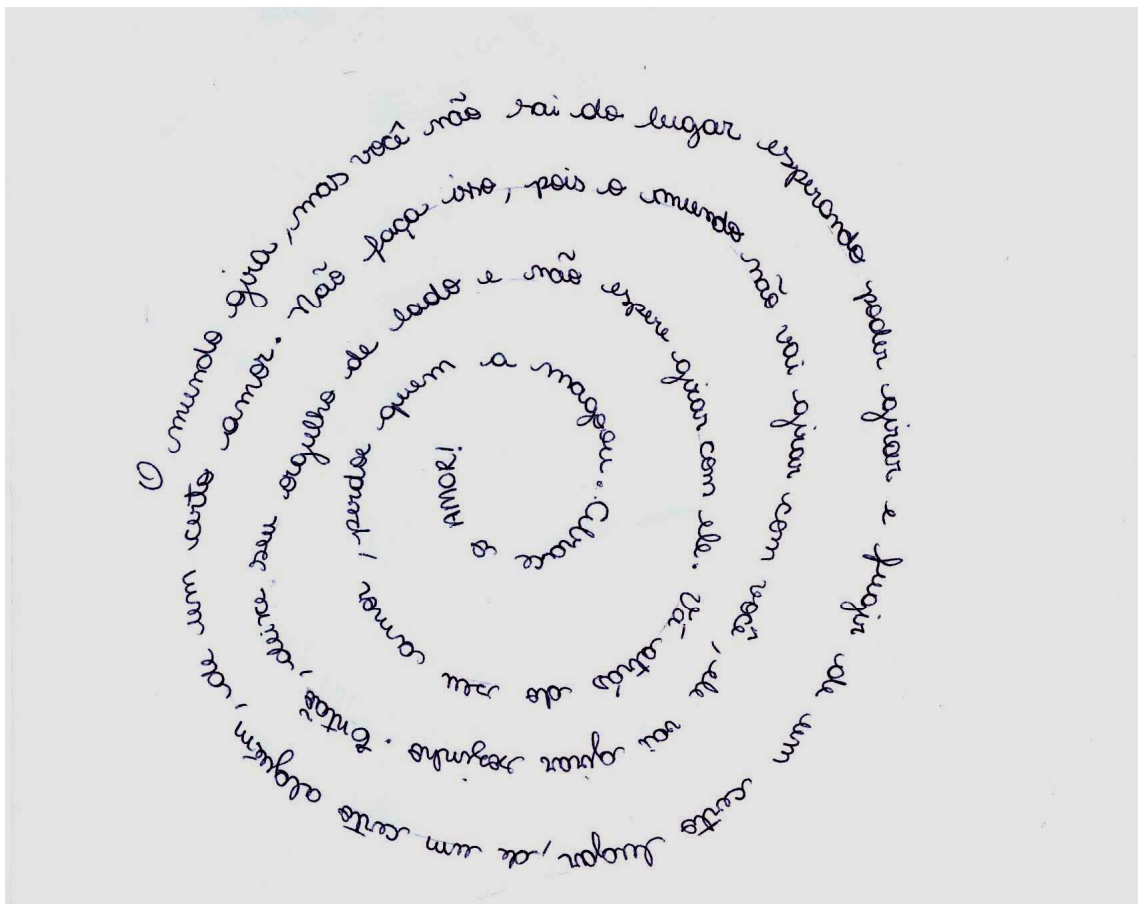 O mundo gira, mas você não sai do lugar esperando poder girar e fugir de um certo lugar, de um certo alguém, de um certo amor. Não faça isso, pois o mundo não vai girar com você, ele vai girar sozinho. Então, deixe seu orgulho de lado e não espere girar com ele. Vá atrás do seu amor, perdoe quem a magoou. Abrace o AMOR!